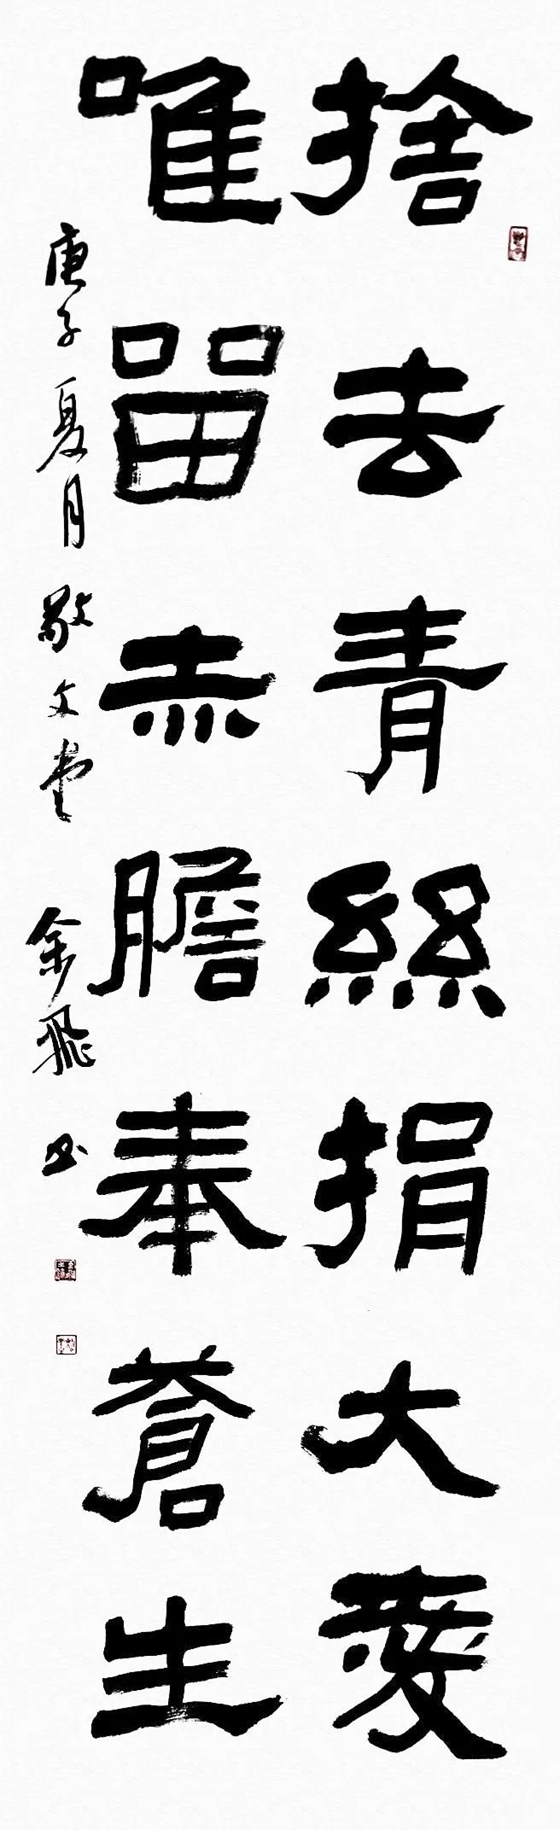 捨去青絲捐大愛
唯留赤膽奉蒼生
庚子夏月敬文堂余飛書